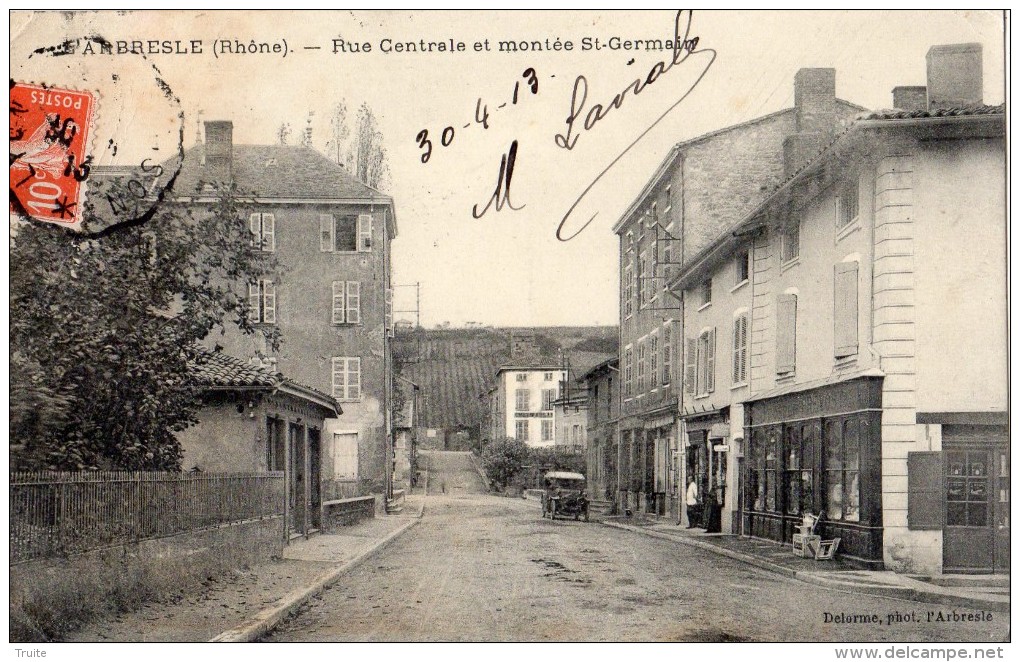 L'ARBRESLE (Rhône). — Rue Centrale et montée St-Germain
POSTES
10c
30-4-13
M Laviral
Delorme, phot. l'Arbresle
Truite
www.delcampe.net